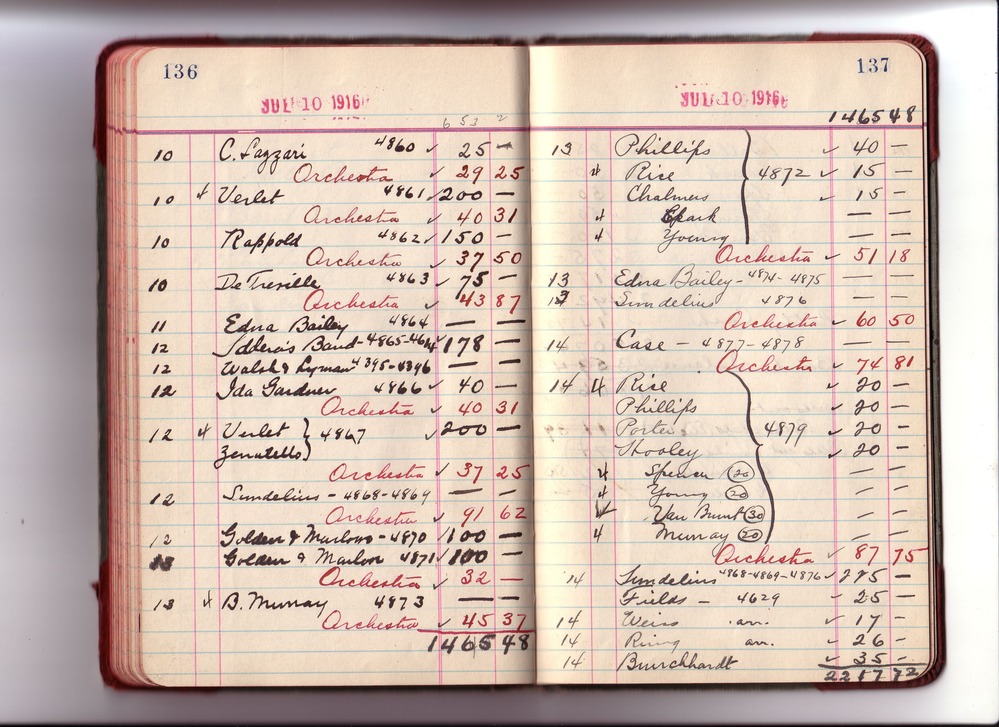 136
JUL 10 1916
6 53 2
10 C. Lazzari 4860 ✓ 25 —
Orchestra ✓ 29 25
10 Verlet 4861 ✓ 200 —
Orchestra ✓ 40 31
10 Rappold 4862 ✓ 150 —
Orchestra ✓ 37 50
10 De Treville 4863 ✓ 75 —
Orchestra ✓ 43 87
11 Edna Bailey 4864 — —
12 Band - 4865- ✓ 178 —
12 Walsh & Lyman 4395-4396 — —
12 Ida Gardner 4866 ✓ 40 —
Orchestra ✓ 40 31
12 Verlet } 4867 ✓ 200 —
Zenatello
Orchestra ✓ 37 25
12 Sundelius - 4868-4869 — —
Orchestra ✓ 91 62
12 Golden & Marlowe - 4870 ✓ 100 —
Golden & Marlow 4871 ✓ 100 —
Orchestra ✓ 32 —
13 B. Murray 4873 — —
Orchestra ✓ 45 37
1465 48
137
JUL 10 1916
1465 48
13 Phillips ✓ 40 —
4 Rise } 4872 ✓ 15 —
Chalmers ✓ 15 —
4 Clark — —
4 Young — —
Orchestra ✓ 51 18
13 Edna Bailey - 4874-4875 — —
13 Sundelius 4876 — —
Orchestra ✓ 60 50
14 Case - 4877-4878 — —
Orchestra ✓ 74 81
14 4 Rise ✓ 20 —
Phillips ✓ 20 —
Porter } 4879 ✓ 20 —
Hooley ✓ 20 —
4 Spencer (20) — —
4 Young (20) — —
Van Brunt (30) — —
4 Murray (20) — —
Orchestra ✓ 87 75
14 Sundelius 4868-4869-4876 ✓ 275 —
Fields - 4629 ✓ 25 —
14 Weiss arr. ✓ 17 —
14 Rining arr. ✓ 26 —
14 Burckhardt ✓ 35 —
2217 72